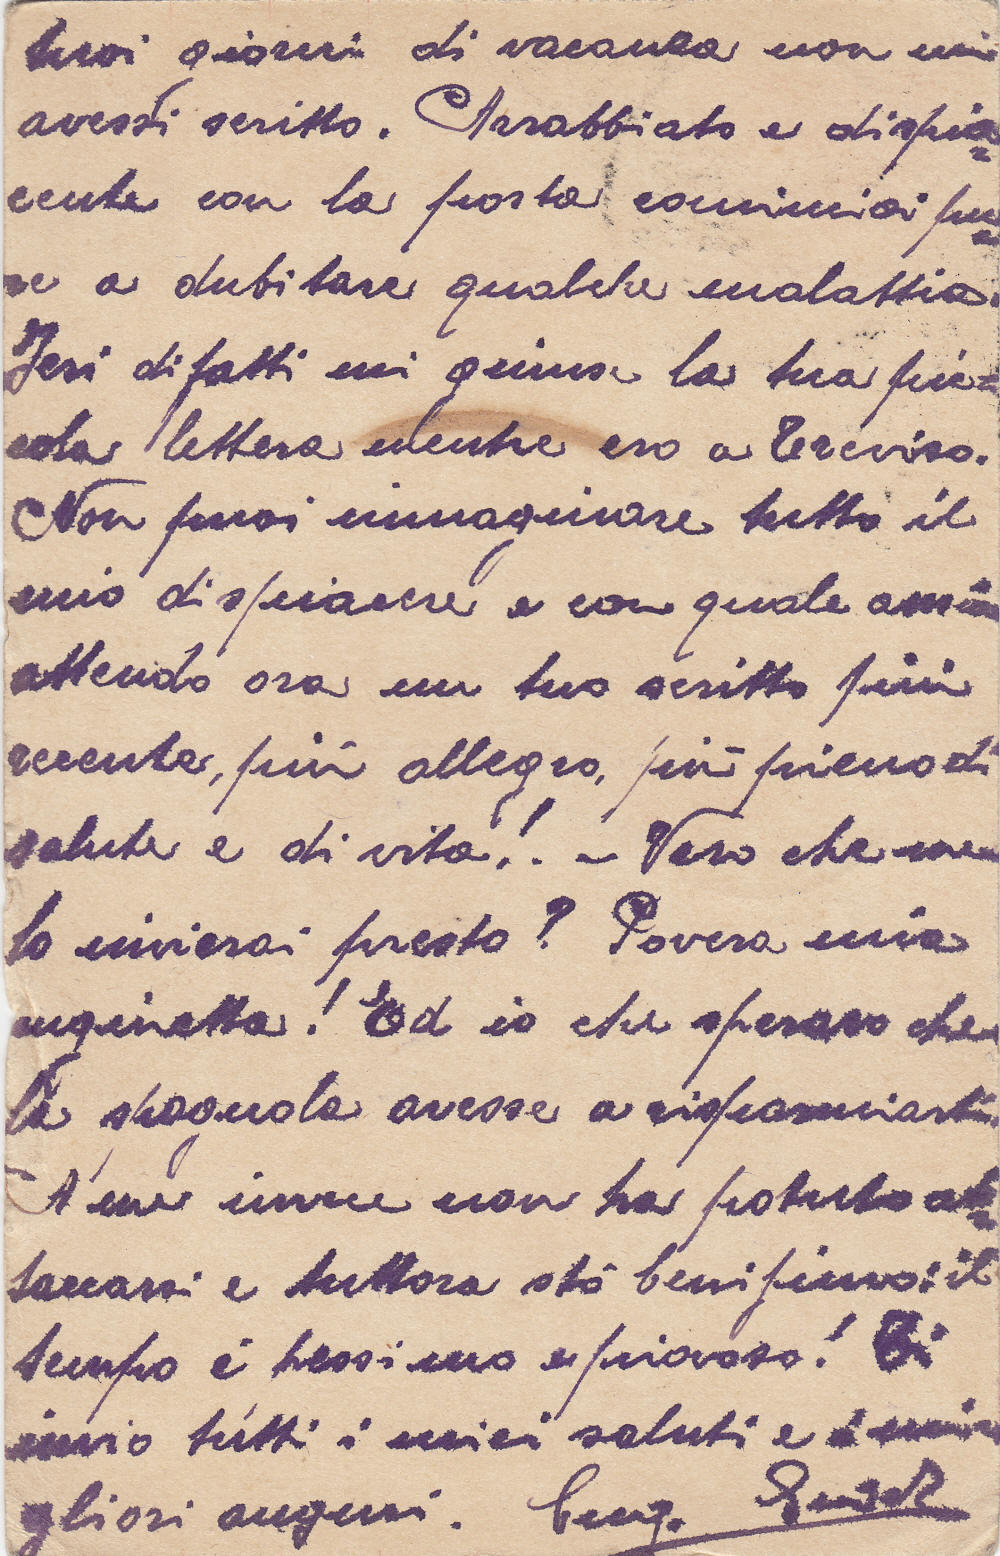 tuoi giorni di vacanza non mi
avessi scritto. Arrabbiato e dispia=
cente con la posta cominciai pu=
re a dubitare qualche malattia.
Jeri difatti mi giunse la tua pic=
cola lettera mentre ero a Treviso.
Non puoi immaginare tutto il
mio dispiacere e con quale ansia
attendo ora un tuo scritto più
recente, più allegro, più pieno di
salute e di vita!. – Vero che me
lo invierai presto? Povera mia
cuginetta! Ed io che speravo che
la spagnola avesse a risparmiarti.
A me invece non ha potuto at=
taccarsi e tuttora stò benissimo: il
tempo è pessimo e piovoso! Ti
invio tutti i miei saluti e i mi
gliori auguri. Cug.